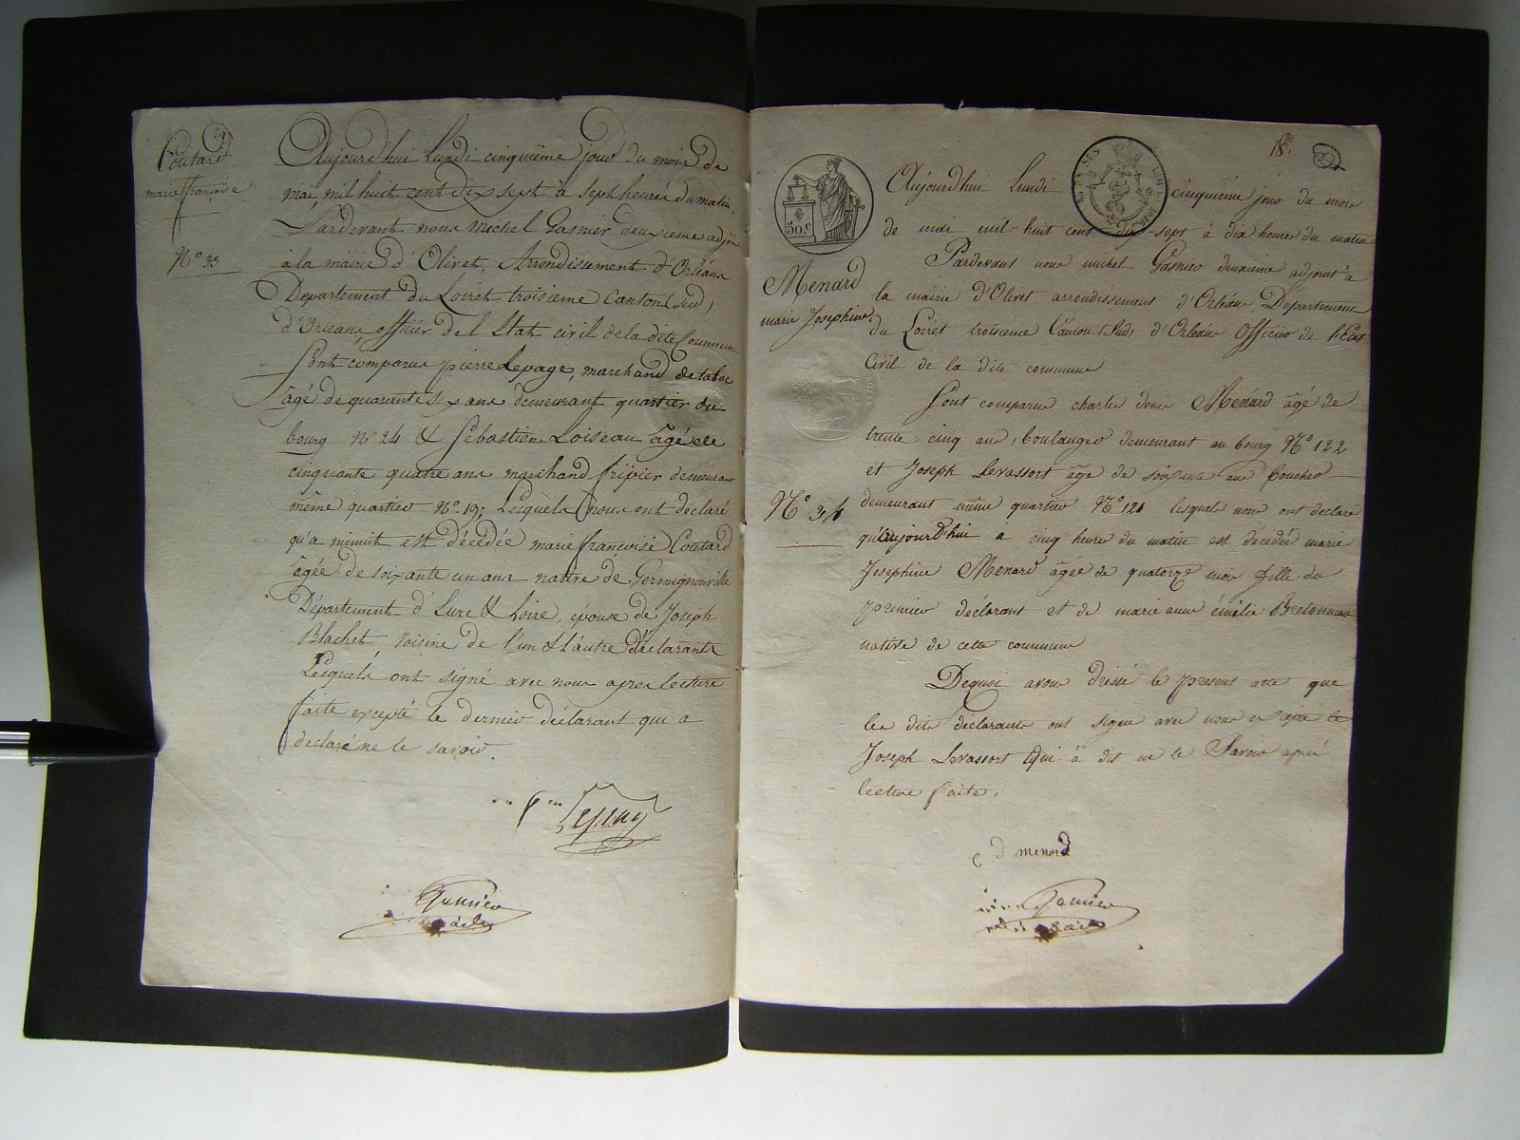 Coutard
marie françoise
N.° 33
Aujourd'hui Lundi cinquième jour du mois de
mai, mil huit cent dix sept à sept heures du matin,
Pardevant nous Michel Gasnier deuxieme adjt
à la mairie d'Olivet, Arrondissement d'Orléans
Département du Loiret troisieme Canton (sud)
d'Orléans, officier de l'Etat civil de la dite Commune
Sont comparus pierre Lepage, marchand de tabac
âgé de quarante six ans demeurant quartier du
bourg N.° 24 & Sébastien Loiseau âgé de
cinquante quatre ans marchand fripier demeurant
même quartier N.° 19; Lesquels nous ont déclaré
qu'a minuit est décédée marie françoise Coutard
âgée de soixante un ans native de Germignonville
Département d'Eure & Loire, épouse de Joseph
Blachet voisine de l'un & l'autre déclarants
Lesquels ont signé avec nous apres lecture
faite excepté le dernier déclarant qui a
déclaré ne le savoir.
Lepage
Gasnier
18.
50.c
Menard
marie Josephine
N.° 34
Aujourdhui Lundi cinquieme jour du mois
de mai mil-huit cent dix-sept à dix heures du matin
Pardevant nous michel Gasnier deuxieme adjoint à
la mairie d'Olivet arrondissement d'Orléans, Département
du Loiret troisieme Canton (Sud) d'Orléans Officier de l'Etat
Civil de la dite commune
Sont comparus charles denis Menard âgé de
trente cinq ans, boulanger demeurant au bourg N.° 122
et Joseph Levassort âgé de soixante ans
demeurant même quartier N.° 121 lesquels nous ont déclaré
qu'aujourd'hui à cinq heures du matin est décédée marie
Josephine Menard âgée de quatorze mois fille du
premier déclarant et de marie anne émélie
native de cette commune
Dequoi avons dressé le present acte que
les dits déclarants ont signé avec nous excepté le
Joseph Levassort Qui à dit ne le Savoir après
lecture faite.
c d menard
Gasnier